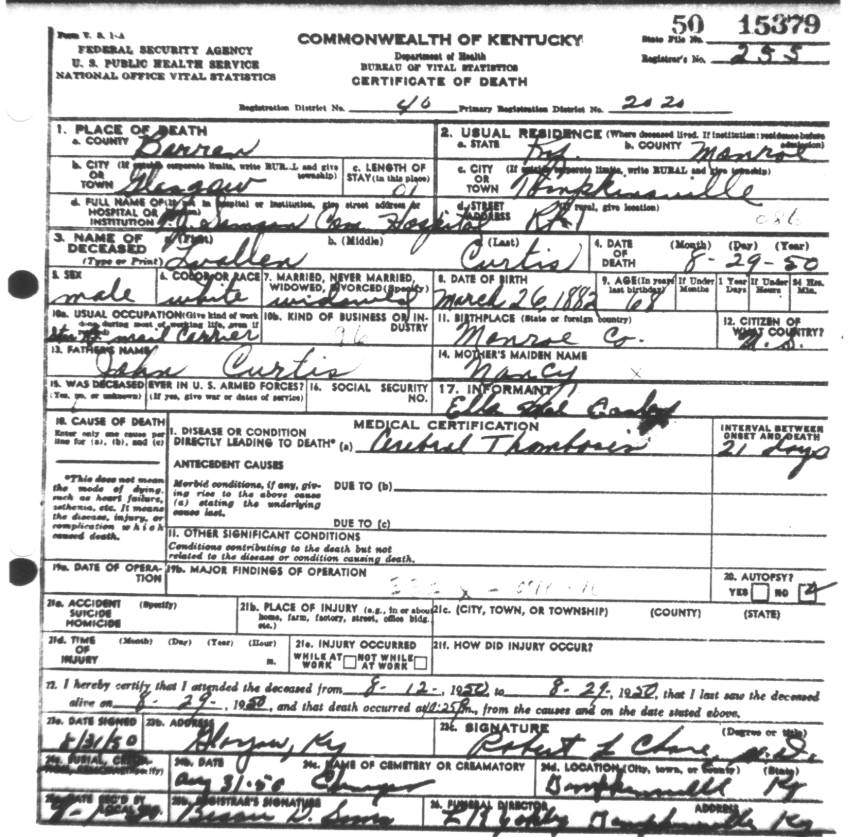 Form V. S. 1-A
FEDERAL SECURITY AGENCY
U. S. PUBLIC HEALTH SERVICE
NATIONAL OFFICE VITAL STATISTICS
COMMONWEALTH OF KENTUCKY
Department of Health
BUREAU OF VITAL STATISTICS
CERTIFICATE OF DEATH
State File No. 50 15379
Registrar's No. 255
Registration District No. 40 Primary Registration District No. 2020
1. PLACE OF DEATH
a. COUNTY Barren
2. USUAL RESIDENCE (Where deceased lived. If institution: residence before admission)
a. STATE Ky. b. COUNTY Monroe
b. CITY (If outside corporate limits, write RURAL and give township)
OR TOWN Glasgow
c. LENGTH OF STAY (in this place)
c. CITY (If outside corporate limits, write RURAL and give township)
OR TOWN Tompkinsville
d. FULL NAME OF (If not in hospital or institution, give street address or
HOSPITAL OR INSTITUTION T.J. Samson Com. Hospital
d. STREET ADDRESS (If rural, give location) R#1
3. NAME OF DECEASED (Type or Print)
a. (First) b. (Middle) c. (Last) Curtis
4. DATE OF DEATH (Month) (Day) (Year) 8-29-50
5. SEX male
6. COLOR OR RACE white
7. MARRIED, NEVER MARRIED, WIDOWED, DIVORCED (Specify) widowed
8. DATE OF BIRTH March 26, 1882
9. AGE (In years last birthday) 68 If Under 1 Year Months Days If Under 24 Hrs. Hours Min.
10a. USUAL OCCUPATION (Give kind of work done during most of working life, even if retired) mail carrier
10b. KIND OF BUSINESS OR INDUSTRY 96
11. BIRTHPLACE (State or foreign country) Monroe Co.
12. CITIZEN OF WHAT COUNTRY? U.S.
13. FATHER'S NAME John Curtis
14. MOTHER'S MAIDEN NAME Nancy x
15. WAS DECEASED EVER IN U. S. ARMED FORCES?
(Yes, no, or unknown) (If yes, give war or dates of service)
16. SOCIAL SECURITY NO.
17. INFORMANT Ella Mae
18. CAUSE OF DEATH
Enter only one cause per line for (a), (b), and (c)
*This does not mean the mode of dying, such as heart failure, asthenia, etc. It means the disease, injury, or complication which caused death.
MEDICAL CERTIFICATION
I. DISEASE OR CONDITION DIRECTLY LEADING TO DEATH* (a) Cerebral Thombosis
INTERVAL BETWEEN ONSET AND DEATH 21 days
ANTECEDENT CAUSES
Morbid conditions, if any, giving rise to the above cause (a) stating the underlying cause last.
DUE TO (b)
DUE TO (c)
II. OTHER SIGNIFICANT CONDITIONS
Conditions contributing to the death but not related to the disease or condition causing death.
19a. DATE OF OPERATION
19b. MAJOR FINDINGS OF OPERATION
20. AUTOPSY?
YES NO
21a. ACCIDENT SUICIDE HOMICIDE (Specify)
21b. PLACE OF INJURY (e.g., in or about home, farm, factory, street, office bldg. etc.)
21c. (CITY, TOWN, OR TOWNSHIP) (COUNTY) (STATE)
21d. TIME OF INJURY (Month) (Day) (Year) (Hour) m.
21e. INJURY OCCURRED
WHILE AT WORK NOT WHILE AT WORK
21f. HOW DID INJURY OCCUR?
22. I hereby certify that I attended the deceased from 8-12-, 1950 to 8-29, 1950, that I last saw the deceased
alive on 8-29-, 1950, and that death occurred at 10:25 Pm., from the causes and on the date stated above.
23a. DATE SIGNED 8/31/50
23b. ADDRESS Glasgow, Ky
23c. SIGNATURE (Degree or title) Robert L Chase M.D.
24a. BURIAL, CREMATION, REMOVAL (Specify)
24b. DATE Aug 31-50
24c. NAME OF CEMETERY OR CREAMATORY
24d. LOCATION (City, town, or county) (State) Tompkinsville Ky
25a. DATE REC'D BY LOCAL REG.
25b. REGISTRAR'S SIGNATURE
26. FUNERAL DIRECTOR ADDRESS Tompkinsville Ky